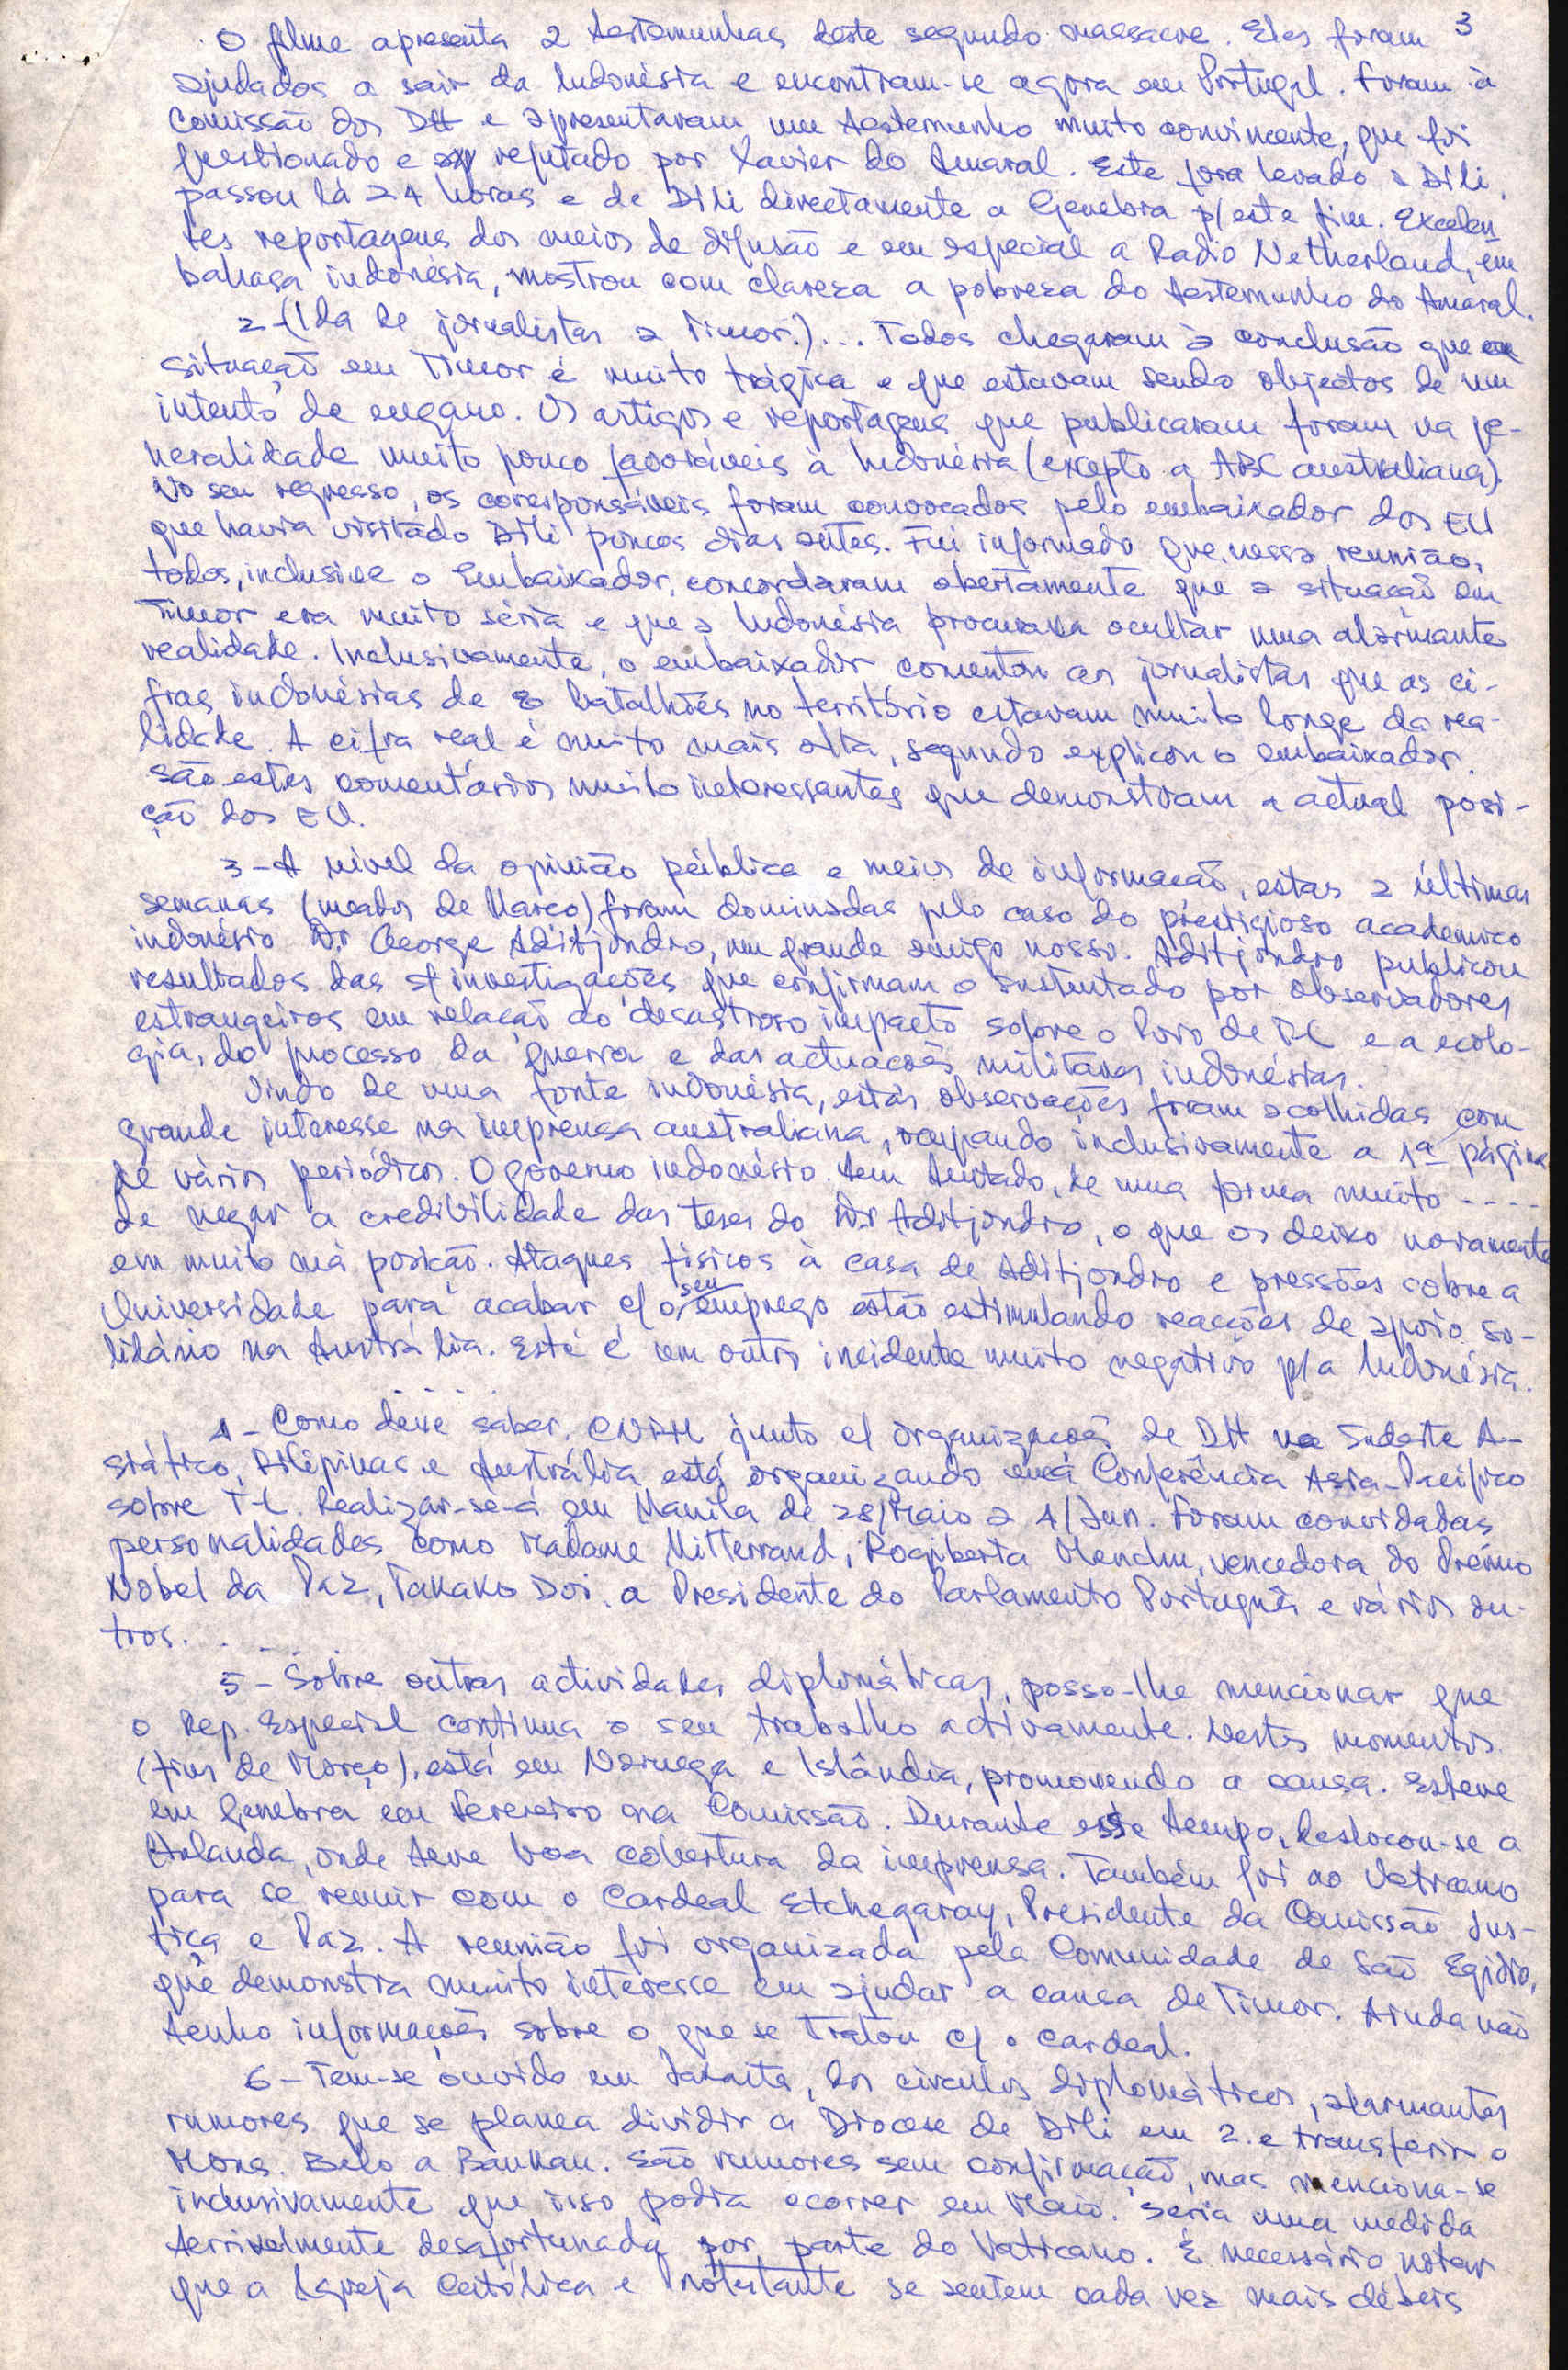 3
O filme apresenta 2 testemunhas deste segundo massacre. Eles foram
ajudados a sair da Indonésia e encontram-se agora em Portugal. Foram à
Comissão dos DH e apresentaram um testemunho muito convincente, que foi
questionado e refutado por Xavier do Amaral. Este fora levado a Dili,
passou lá 24 horas e de Dili directamente a Genebra p/ este fim. Excelen
tes reportagens dos meios de difusão e em especial a Radio Netherland, em
bahasa indonésia, mostrou com clareza a pobreza do testemunho do Amaral.
2-(Ida de jornalistas a Timor.)... Todos chegaram à conclusão que a
situação em Timor é muito trágica e que estavam sendo objectos de um
intento de engano. Os artigos e reportagens que publicaram foram na ge-
neralidade muito pouco favoráveis à Indonésia (excepto a ABC australiana).
No seu regresso, os corresponsáveis foram convocados pelo embaixador dos EU
que havia visitado Dili poucos dias antes. Fui informado que nessa reunião,
todos, inclusive o Embaixador, concordaram abertamente que a situação em
Timor era muito séria e que a Indonésia procurava ocultar uma alarmante
realidade. Inclusivamente, o embaixador comentou aos jornalistas que as ci-
fras indonésias de 8 batalhões no território estavam muito longe da rea-
lidade. A cifra real é muito mais alta, segundo explicou o embaixador.
São estes comentários muito interessantes que demonstram a actual posi-
ção dos EU.
3-A nível da opinião pública e meios de informação, estas 2 últimas
semanas (meados de Março) foram dominadas pelo caso do prestigioso académico
indonésio Dr George Aditjondro, um grande amigo nosso. Aditjondro publicou
resultados das s/ investigações que confirmam o sustentado por observadores
estrangeiros em relação ao desastroso impacto sobre o Povo de TL e a ecolo-
gia, do processo da guerra e das actuações militares indonésias.
Vindo de uma fonte indonésia, estas observações foram acolhidas com
grande interesse na imprensa australiana, ocupando inclusivamente a 1ª página
de vários periódicos. O governo indonésio tem tentado, de uma forma muito ----
de negar a credibilidade das teses do Dr Aditjondro, o que os deixo novamente
em muito má posição. Ataques físicos à casa de Aditjondro e pressões sobre a
Universidade para acabar c/ o seu emprego estão estimulando reacções de apoio so-
lidário na Austrália. Este é um outro incidente muito negativo p/a Indonésia.
. . . . .
4- Como deve saber, CNRM junto c/ organizações de DH no Sudeste A-
siático, Filipinas e Austrália está organizando uma Conferência Asia-Pacífico
sobre T-L. Realizar-se-á em Manila de 28/Maio a 1/Jun. Foram convidadas
personalidades como Madame Mitterrand, Rogiberta Menchu, vencedora do Prémio
Nobel da Paz, Takako Doi, a Presidente do Parlamento Português e vários ou-
tros. . . - - -
5- Sobre outras actividades diplomáticas, posso-lhe mencionar que
o Rep. Especial continua o seu trabalho activamente. Nestes momentos
(fins de Março), está em Noruega e Islândia, promovendo a causa. Esteve
em Genebra em Fevereiro na Comissão. Durante esse tempo, deslocou-se a
Holanda, onde teve boa cobertura da imprensa. Também foi ao Vaticano
para se reunir com o Cardeal Etchegaray, Presidente da Comissão Jus-
tiça e Paz. A reunião foi organizada pela Comunidade de São Egidio,
que demonstra muito interesse em ajudar a causa de Timor. Ainda não
tenho informações sobre o que se tratou c/ o cardeal.
6- Tem-se ouvido em Jakarta, dos círculos diplomáticos, alarmantes
rumores que se planea dividir a Diocese de Dili em 2 e transferir o
Mons. Belo a Baukau. São rumores sem confirmação, mas menciona-se
inclusivamente que isso podia ocorrer em Maio. Seria uma medida
terrivelmente desafortunada por parte do Vaticano. É necessário notar
que a Igreja Católica e Protestante se sentem cada vez mais débeis